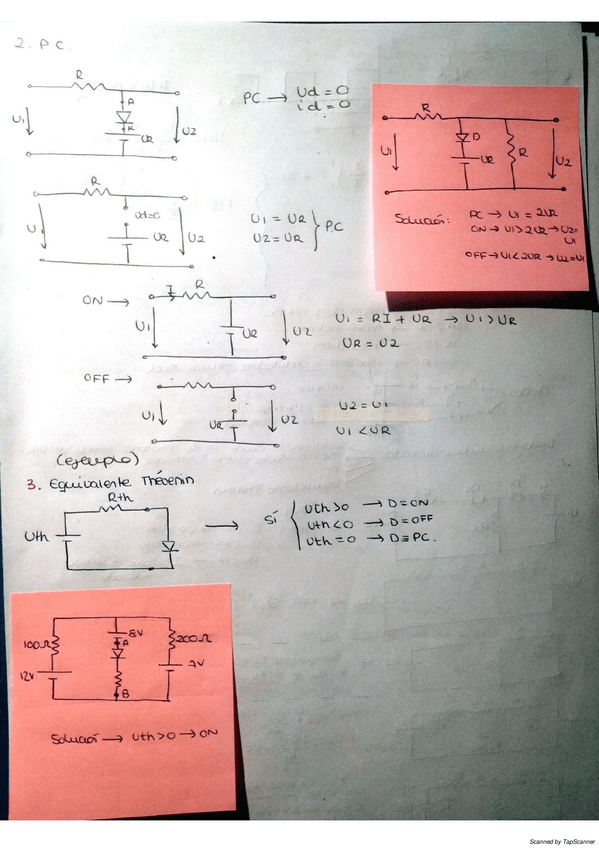 2. P.C.
R
A
K
U1
UR
U2
PC → Ud = 0
id = 0
R
D
U1
UR
R
U2
Solución: PC → U1 = 2UR
ON → U1 > 2UR → U2 =
U1
OFF → U1 < 2UR → U2 = U1
R
Ud=0
U1
UR
U2
U1 = UR
U2 = UR
} P.C
ON →
I
R
U1
UR
U2
U1 = RI + UR → U1 > UR
UR = U2
OFF →
U1
UR
U2
U2 = U1
U1 < UR
(ejemplo)
3. Equivalente Thévenin
Rth
Uth
→ Sí {
Uth>0 → D=ON
Uth<0 → D=OFF
Uth=0 → D≡PC.
100Ω
12V
8V
A
B
200Ω
Solución → Uth>0 → ON
Scanned by TapScanner